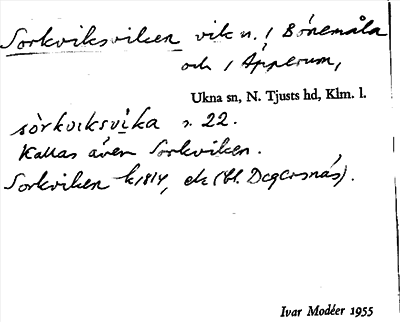 Sorkviksviken vik n. i Bönemåla
och i Äpplerum,
Ukna sn, N. Tjusts hd, Klm. l.
sòrkviksvìka s. 22.
Kallas även Sorkviken.
Sorkviken k1814, ek (bl. Degersnäs).
Ivar Modéer 1955